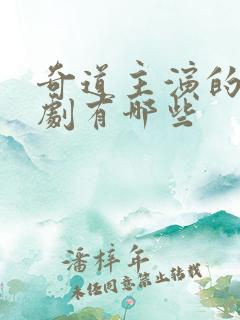 奇道主演的
劇有哪些
潘梓年
未经同意禁止转载